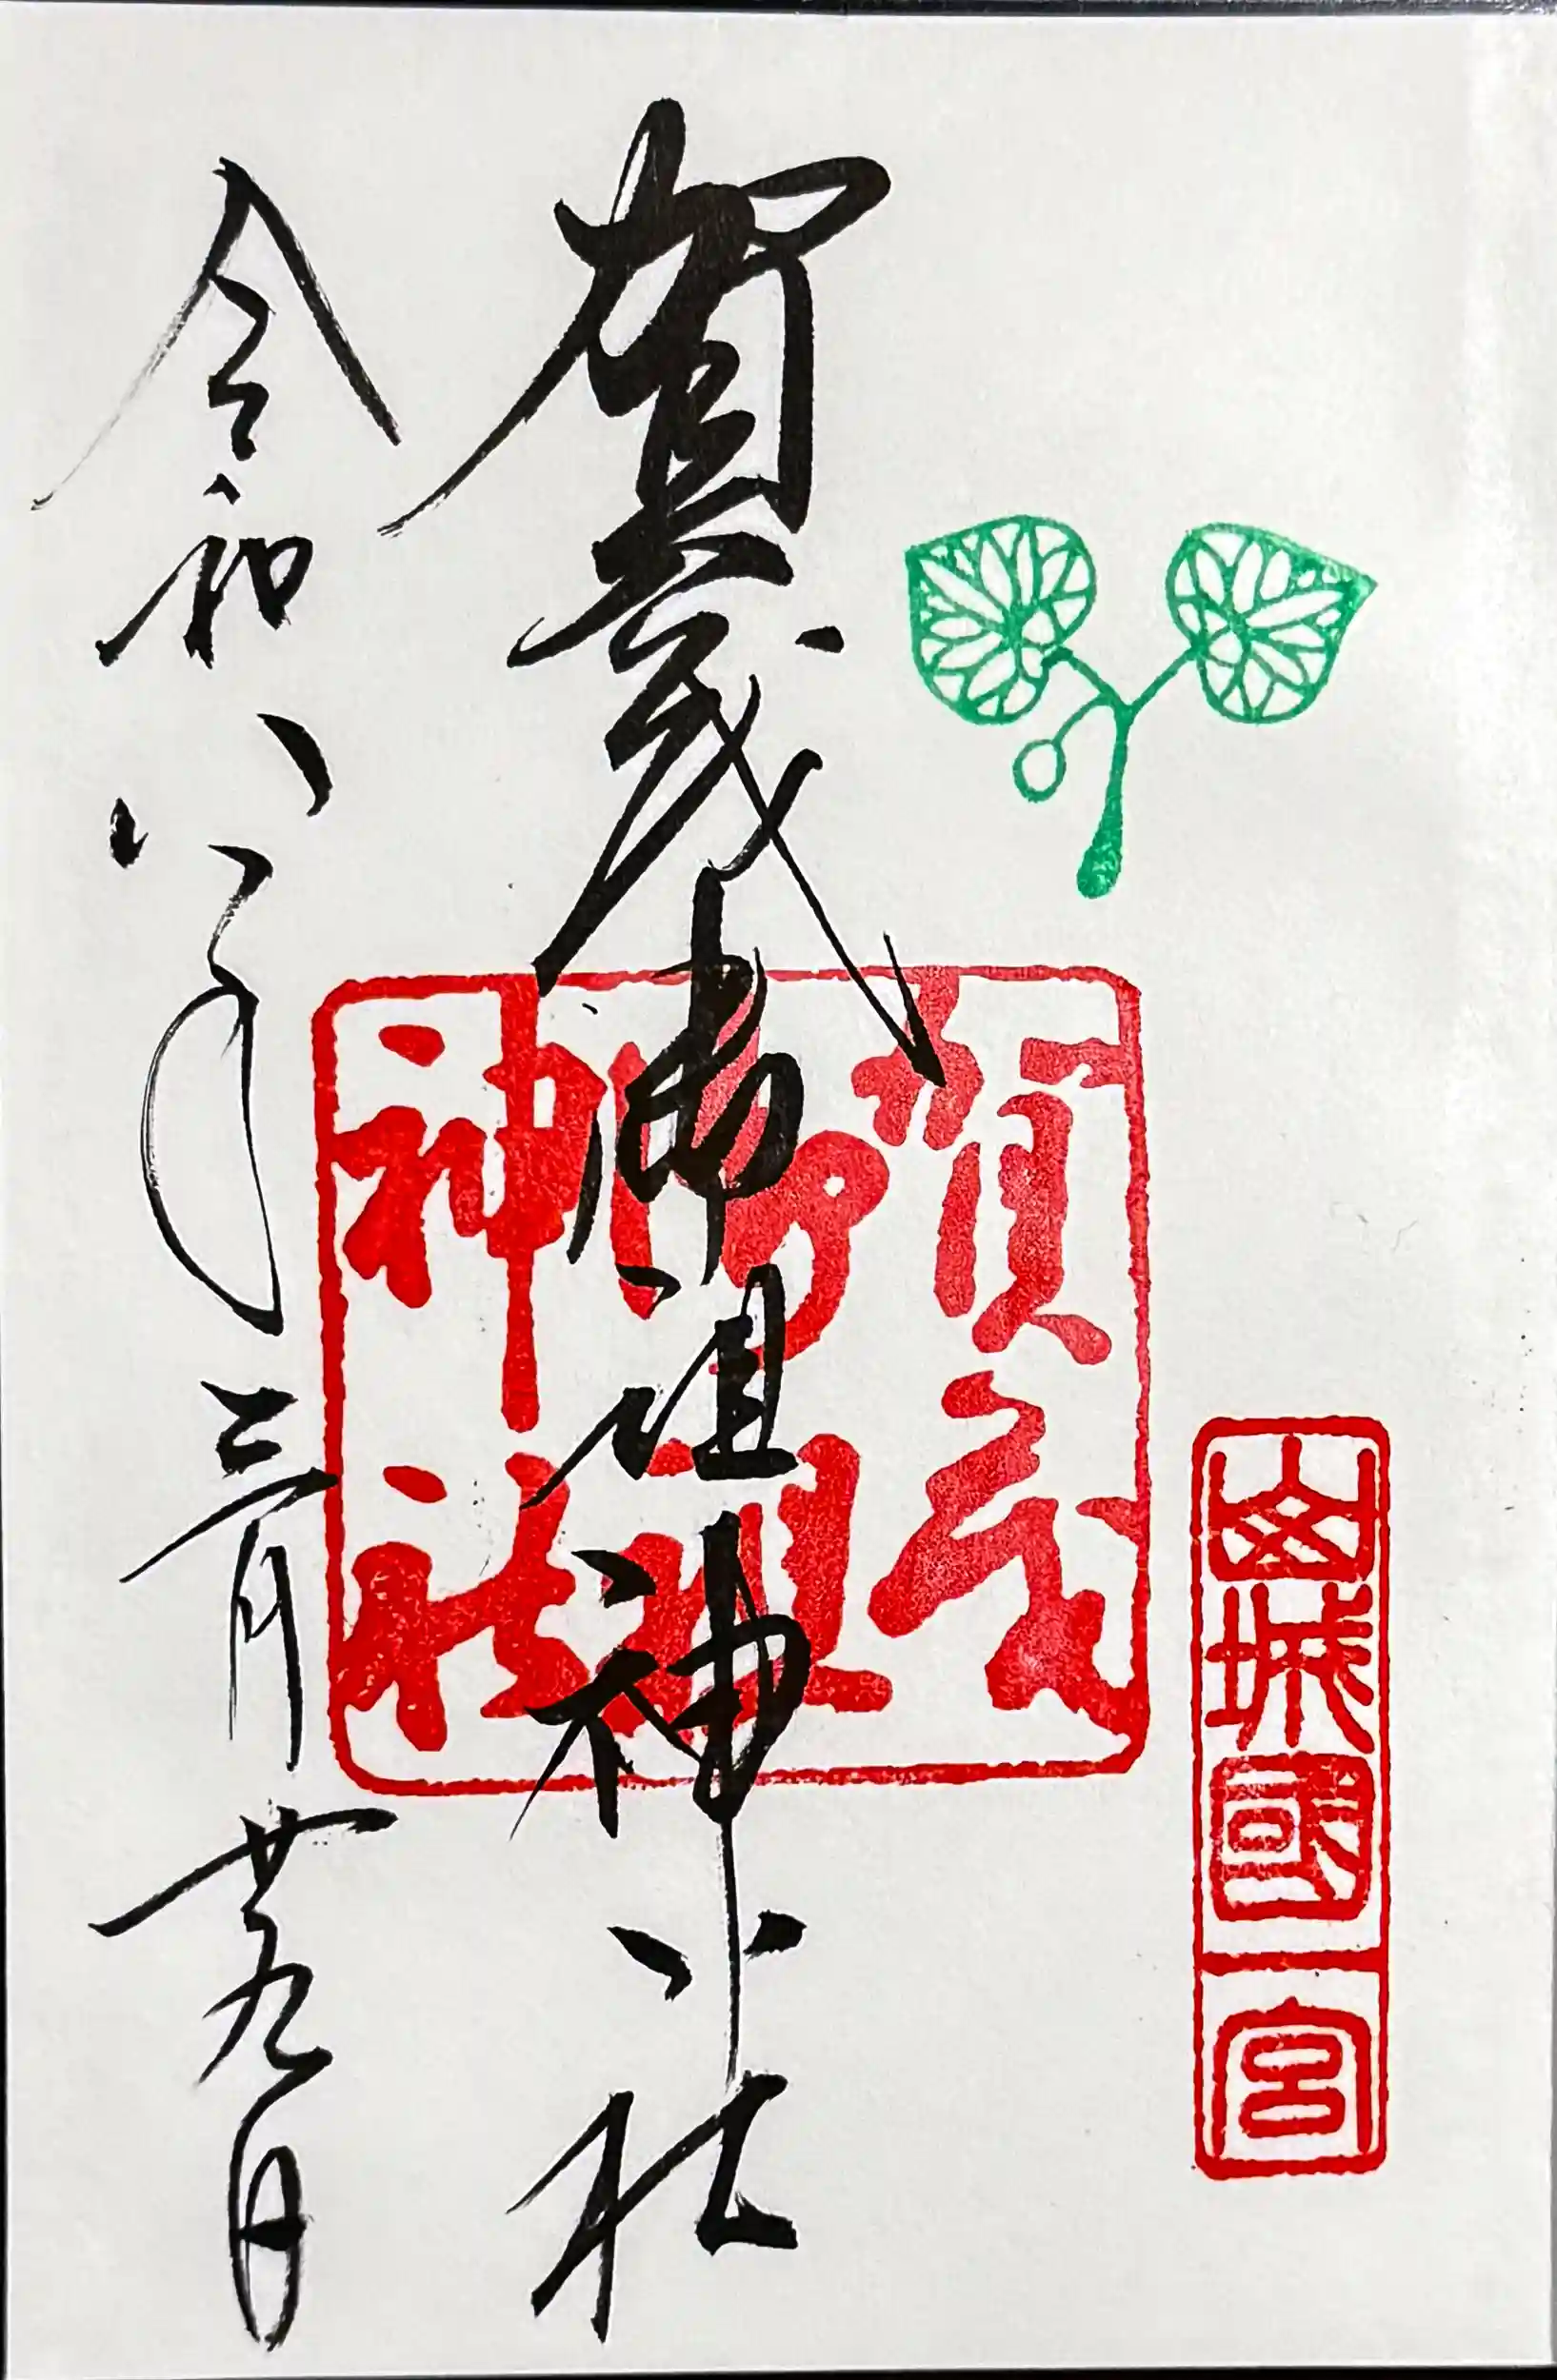 山城國一宮
賀茂御祖神社
賀茂御祖神社
令和八年三月廿九日